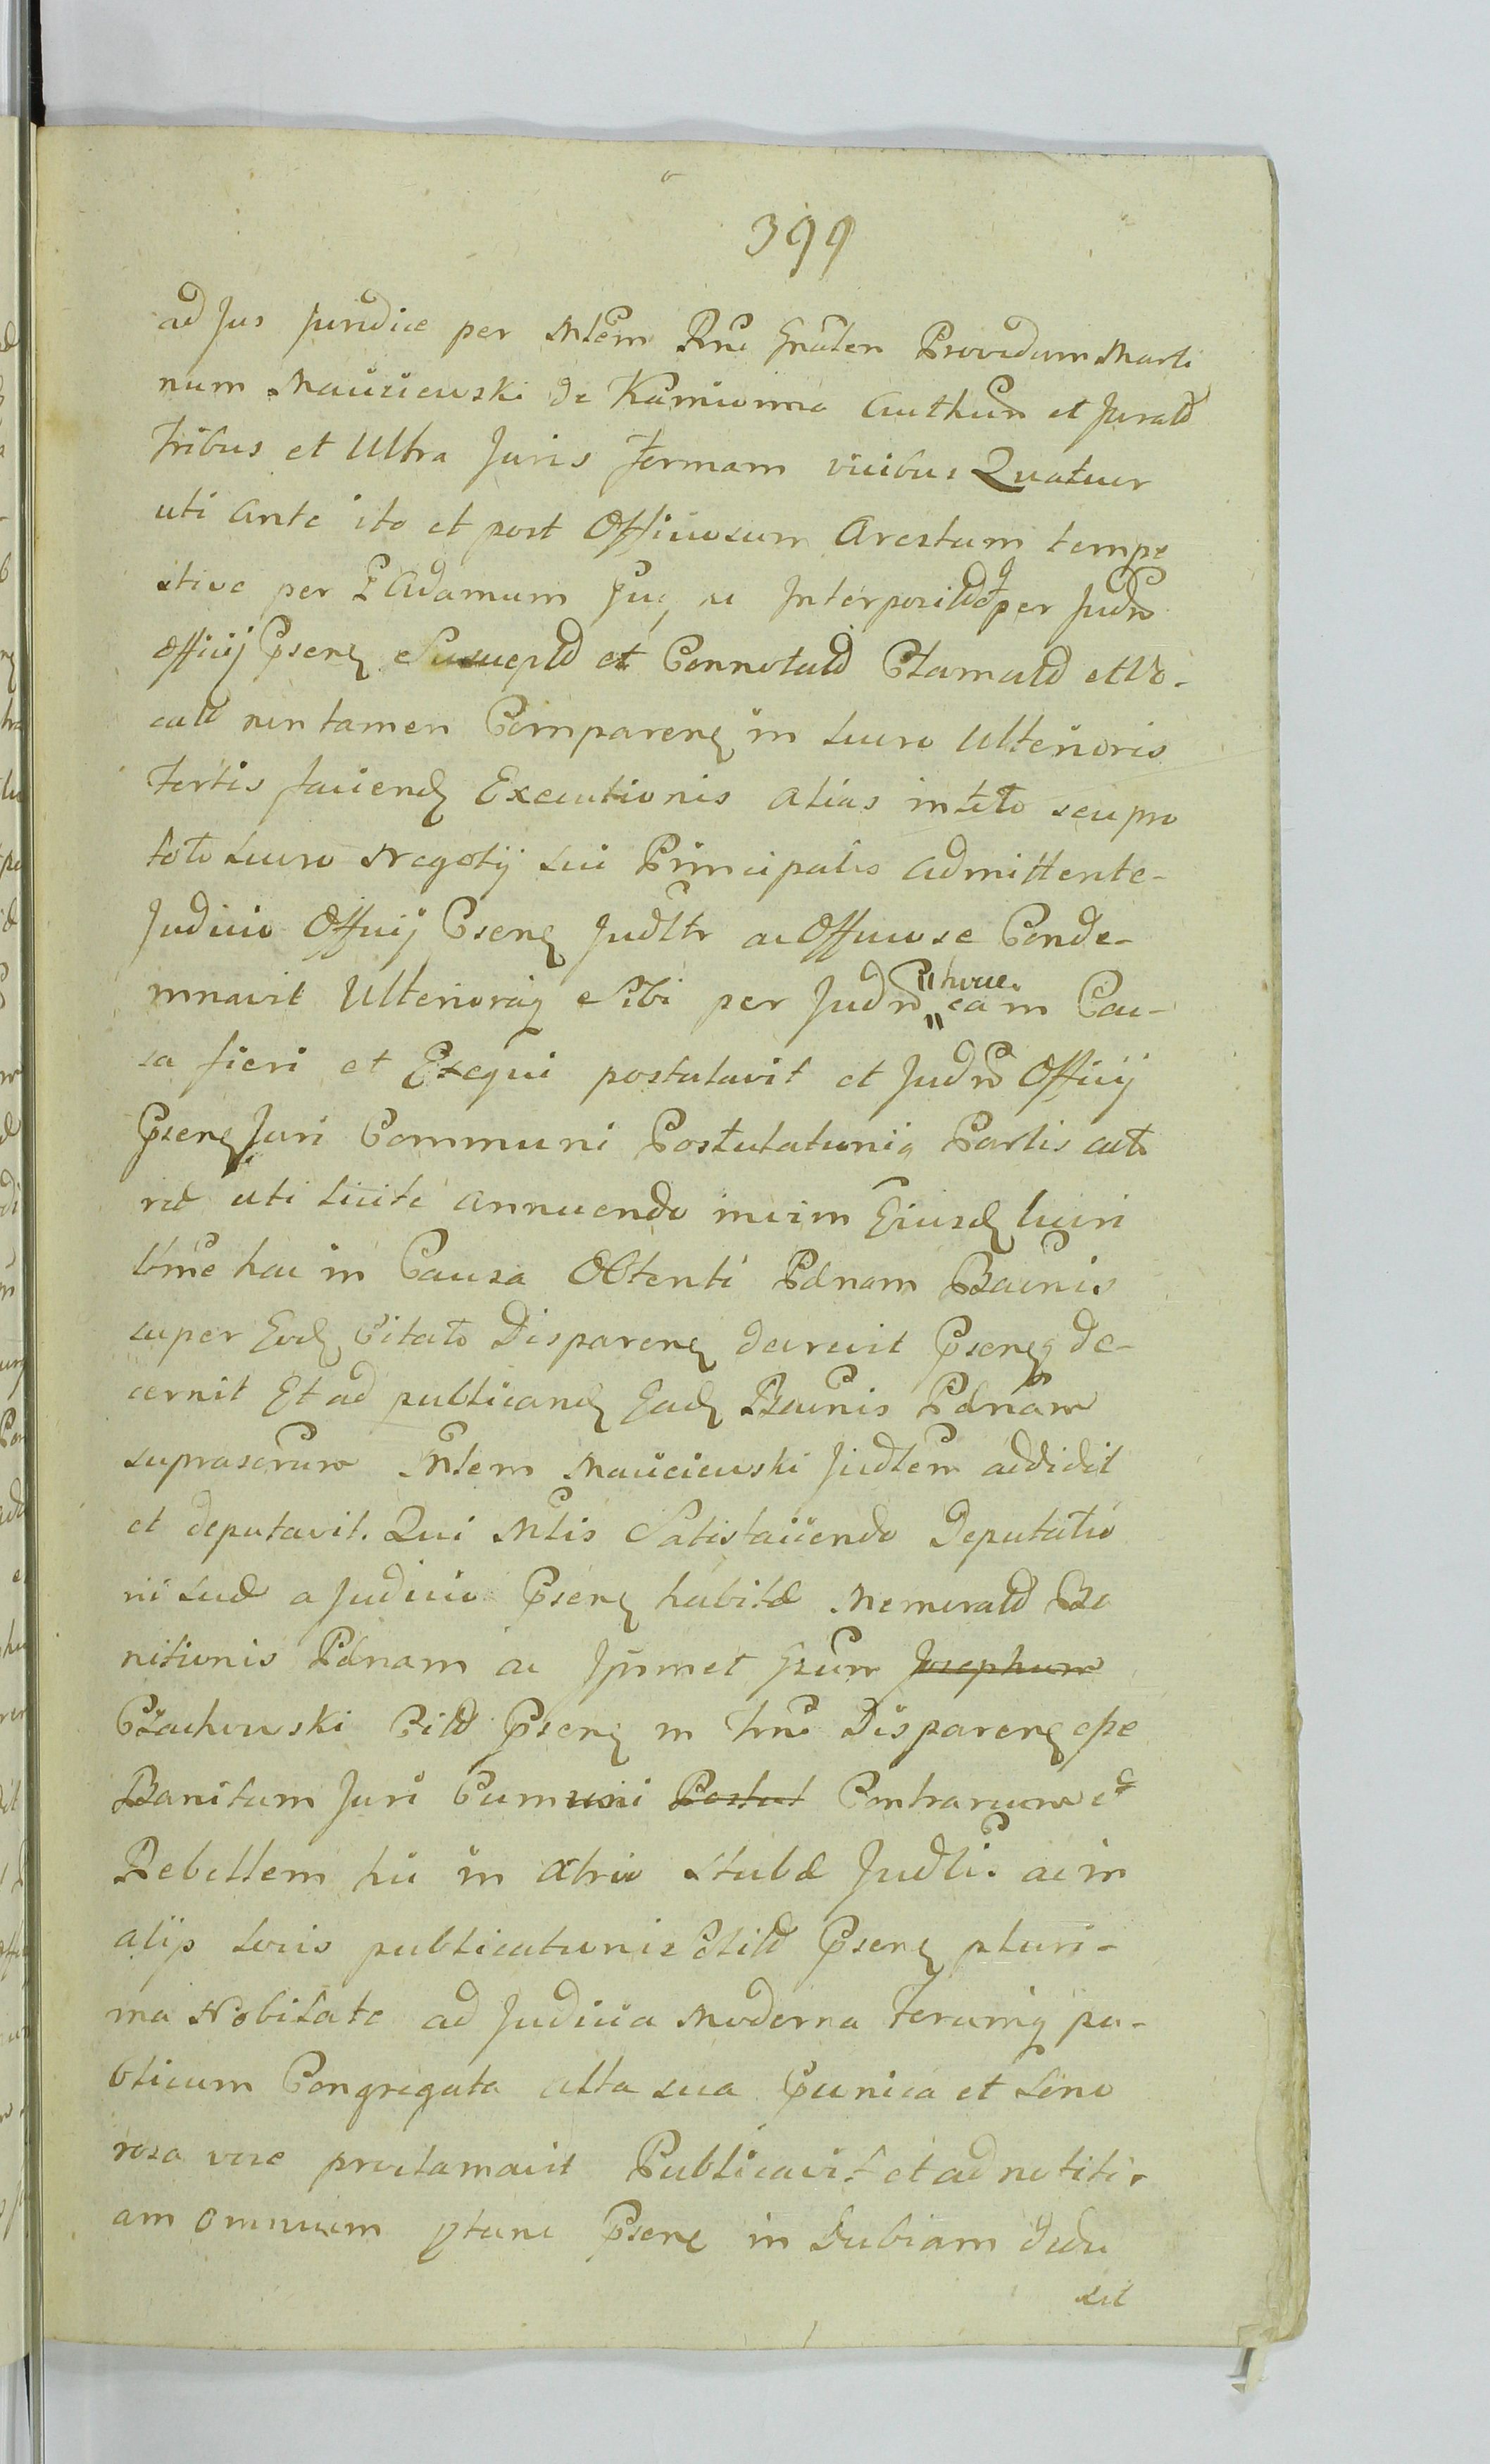 399
ad Jus Juridice per Mlem Rni Gnalem Providum Marti
num Maciejewski de Kamionna Authum et Juratd
tribus et Ultra Juris formam vicibus Quatuor
uti ante ita et post Officiosum Arestum tempe
stive per Adamum ac Interpositd per Judm
Officij Psens Suscepld et Connotatd Clamatd et Vo-
catd non tamen Comparens in lucro Ulterioris
fortis faciend Executionis alias in toto seu pro
toto lucro Negotij sui Principalis admittente
Judicio Officij Psens Judltr ac Officiose Conde-
mnavit Ulterioraq sibi per Judm hocce ea in Cau-
sa fieri et Exequi postulavit et Judm Officij
Psens Juri Communi Postulationiq Partis acto
rae uti licite annuendo in vim Ejusd lucri
ltme hac in Causa Obtenti Paenam Bannis
super Eod Citato Disparens decrevit Psensq de-
cernit Et ad publicand Eand Bannis Paenam
suprascrum Mlem Maciejewski Judlem addidit
et deputavit. Qui Mlis Satisfaciendo Deputatio
ni suae a Judicio Psens habitae Memoratd Ba
nitionis Paenam ac Ipsmet Gsum Josephum
Czachowski Citd Psens in Trno Disparens eße
Banitum Juri Communi Postul Contrarium et
Rebellem hic in atrio stubae Judlis ac in
alijs locis publicationis Psens pluri-
ma Nobilate ad Judicia Moderna forumq pu-
blicum Congregata alta sua Cunica et Sono
rosa voce proclamavit Publicavit et ad notiti-
am omnium ptunc Psens in Dubiam dedu
xit